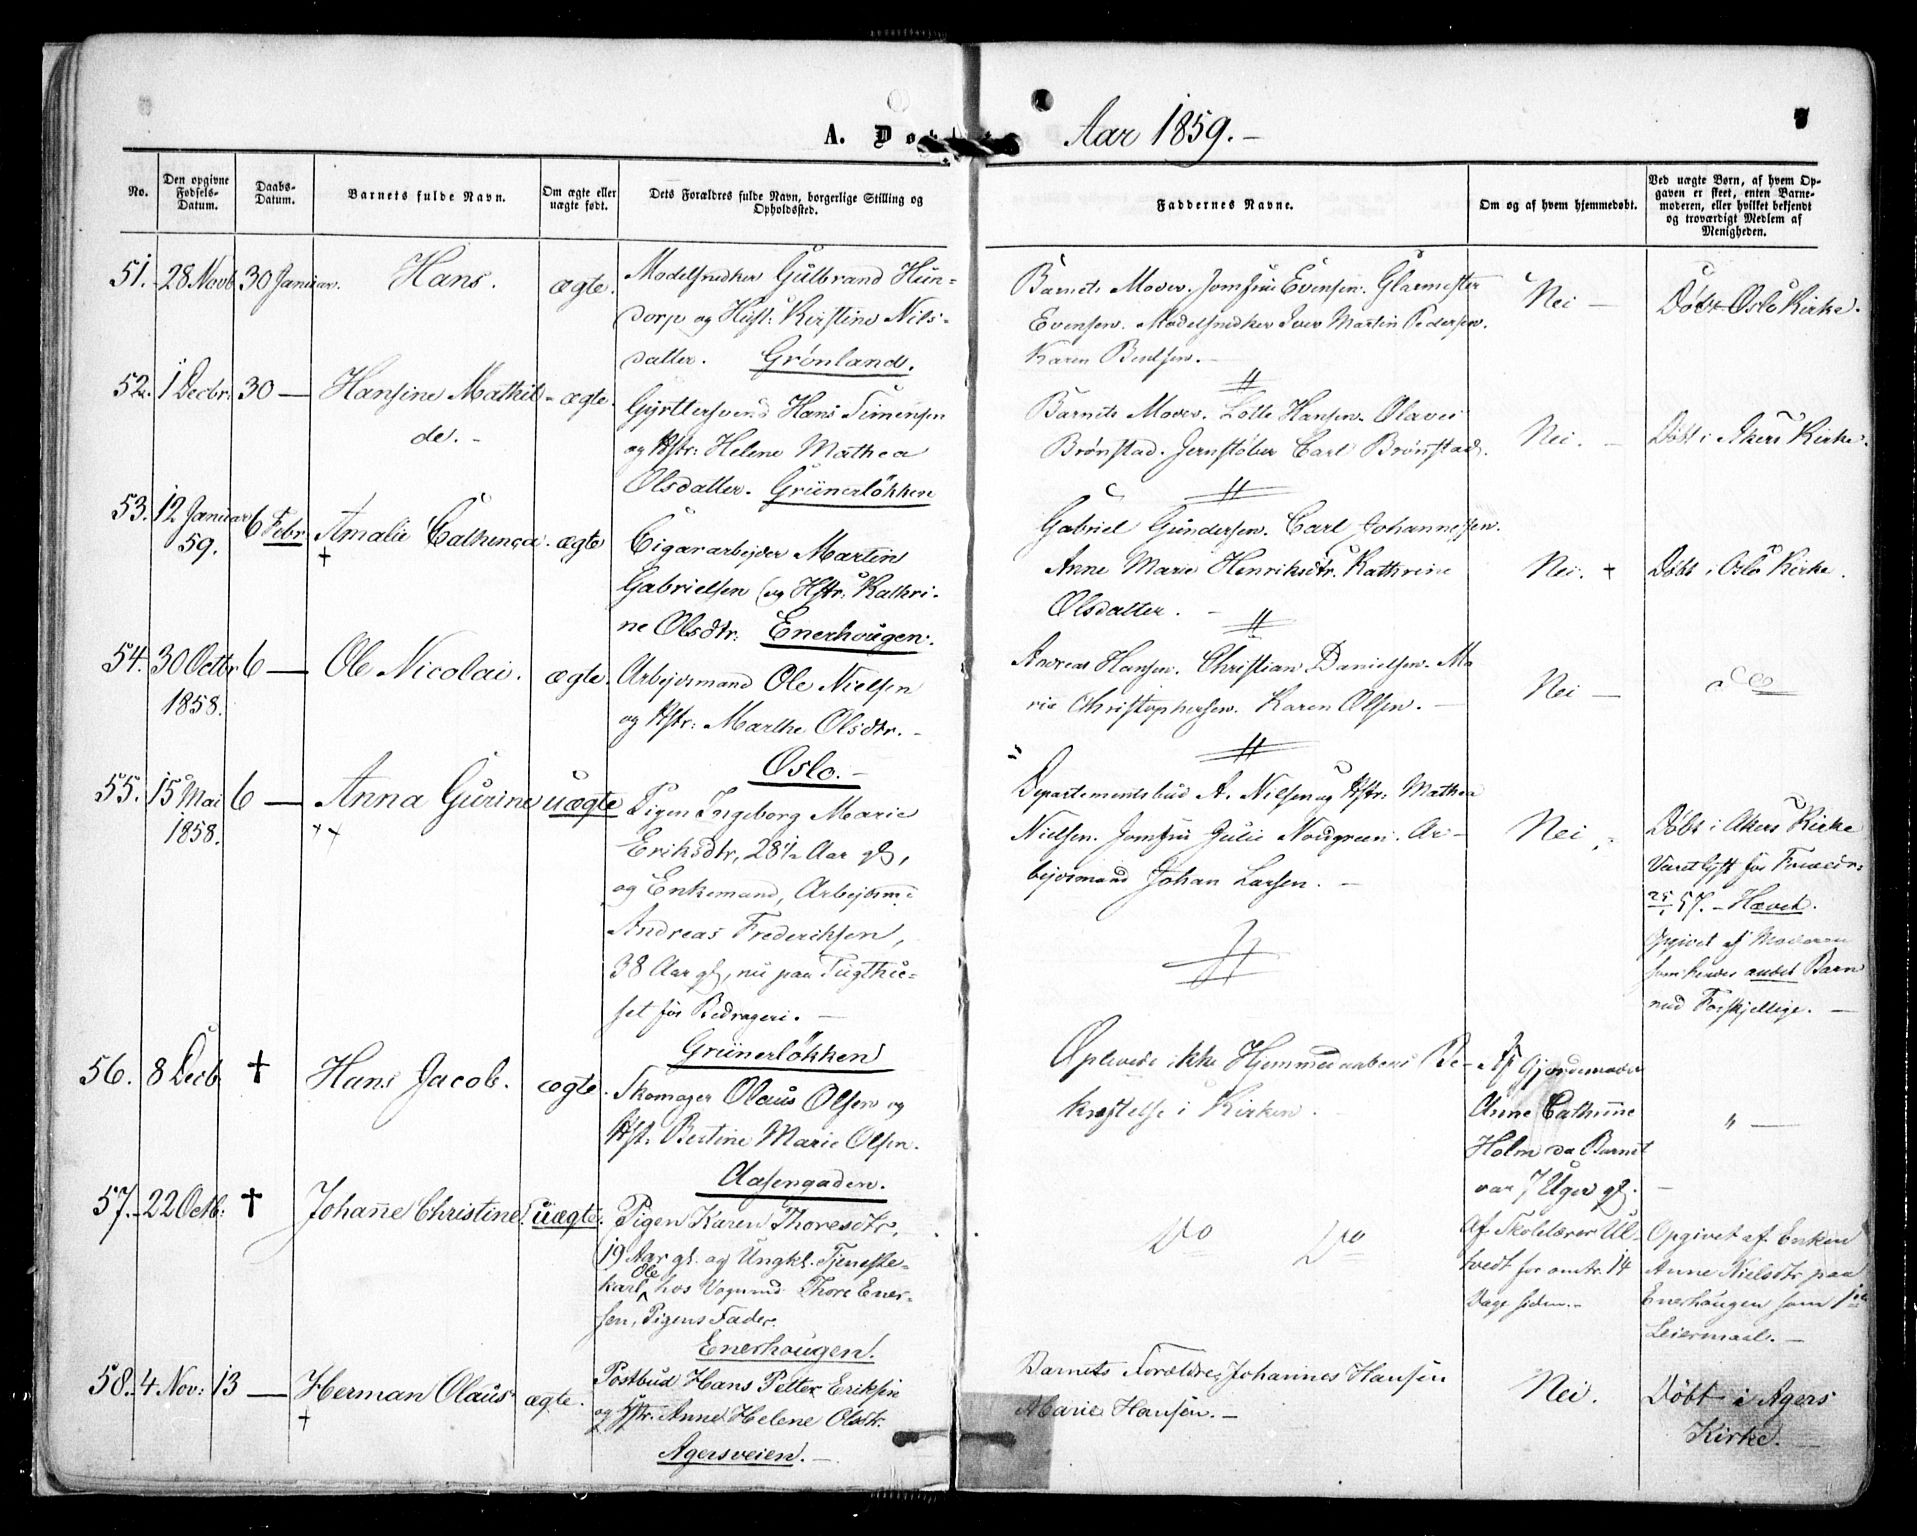 A. Dø
Aar 1859.-
7
No.
Den opgivne Fødsels-Datum.
Daabs-Datum.
Barnets fulde Navn.
Om ægte eller uægte født.
Dets Forældres fulde Navn, borgerlige Stilling og Opholdssted.
Faddernes Navne.
Om og af hvem hjemmedøbt.
Ved uægte Børn, af hvem Opgaven er skeet, enten Barnemoderen, eller hvilket bekjendt og troværdigt Medlem af Menigheden.
51. 28 Novb 30 Januar. Hans. ægte.
Modelsnedker Gulbrand Hun-
dorp og Hust: Kirstine Nils-
datter. Grønland.
Barnets Moder. Jomfru Evensen. Glarmester
Evensen. Modelsnedker Iver Martin Pedersen.
Karen Bentsen.-
Nei -
Døbt Oslo Kirke.
52. 1 Decbr. 30 — Hansine Mathil-
de.- ægte.
Gjørtlersvend Hans Simensen
og Hstr: Helene Mathea
Olsdatter. Grünerløkken
Barnets Moder. Lotte Hansen. Olava
Brønstad. Jernstøber Carl Brønstad.
Nei. -
Døbt i Akers Kirke.
53. 12 Januar
59. 6 Febr. Amalie Cathinca. ægte
Cigararbejder Martin
Gabrielsen og Hstr: Kathri-
ne Olsdtr: Enerhougen.
Gabriel Gundersen. Carl Johannessen.
Anne Marie Henriksdtr. Kathrine
Olsdatter. -
Nei. +
Døbt i Oslo Kirke.
54. 30 Octbr
1858. 6 — Ole Nicolai. ægte.
Arbejdsmand Ole Nielsen
og Hstr: Marthe Olsdtr. -
Oslo.-
Andreas Hansen. Christian Danielsen. Ma
rie Christophersen. Karen Olsen. -
Nei —
55. 15 Mai
1858. 6 — Anna Gurine uægte
Pigen Ingeborg Marie
Eriksdtr, 28 1/2 Aar gl,
og Enkemand, Arbejdsm:
Andreas Frederiksen,
38 Aar gl, nu paa Tugthu-
set for Bedrageri. -
Grünerløkken
Departementsbud A. Nilsen og Hstr: Mathea
Nielsen. Jomfru Julie Nordgreen. Ar-
bejdsmand Johan Larsen. -
Nei
Døbt i Akers Kirke
57. - Hævet.
Opgivet af Moderen
som hendes andet Barn
med Forskjellige. -
56. 8 Decb. † Hans Jacob. ægte.
Skomager Olaus Olsen og
Hst: Bertine Marie Olsen.
Aasengaden.
Oplevede ikke Hjemmedaabens Be-
kræftelse i Kirken.
Af Gjordemoder
Anne Cathrine
Holm da Barnet
var 7 Uger gl.
" —
57. 22 Octb: † Johanne Christine. uægte.
Pigen Karen Thoresdtr,
19 Aar gl. og Ungkl. Tjeneste-
karl Ole hos Vognmd Thore Ener-
sen, Pigens Fader.
Enerhougen.
Do Do
Af Skolelærer Ul-
tvedt for omtr. 14
Dage siden.-
Opgivet af Enken
Anne Nielsdtr paa
Enerhougen som 1ste
Leiermaal. -
58. 4 Nov: 13 — Herman Olaus. ægte.
Postbud Hans Petter Eriksen
og Hstr. Anne Helene Olsdtr.
Agersveien. -
Barnets Forældre, Johannes Hansen
Marie Hansen. -
Nei.
Døbt i Agers
Kirke.